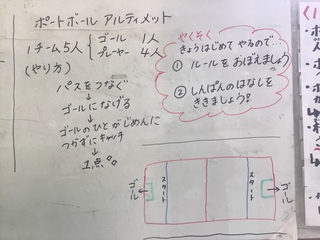 ポートボール アルティメット
1チーム5人 { ゴール 1人
プレーヤー 4人
(やり方)
パスをつなぐ
↓
ゴールになげる
↓
ゴールのひとがじめんに
つかずにキャッチ
↓
1点
やくそく
きょうはじめてやるので…
① ルールをおぼえましょう
② しんぱんのはなしを
ききましょう!
ゴール
スタート
スタート
ゴール